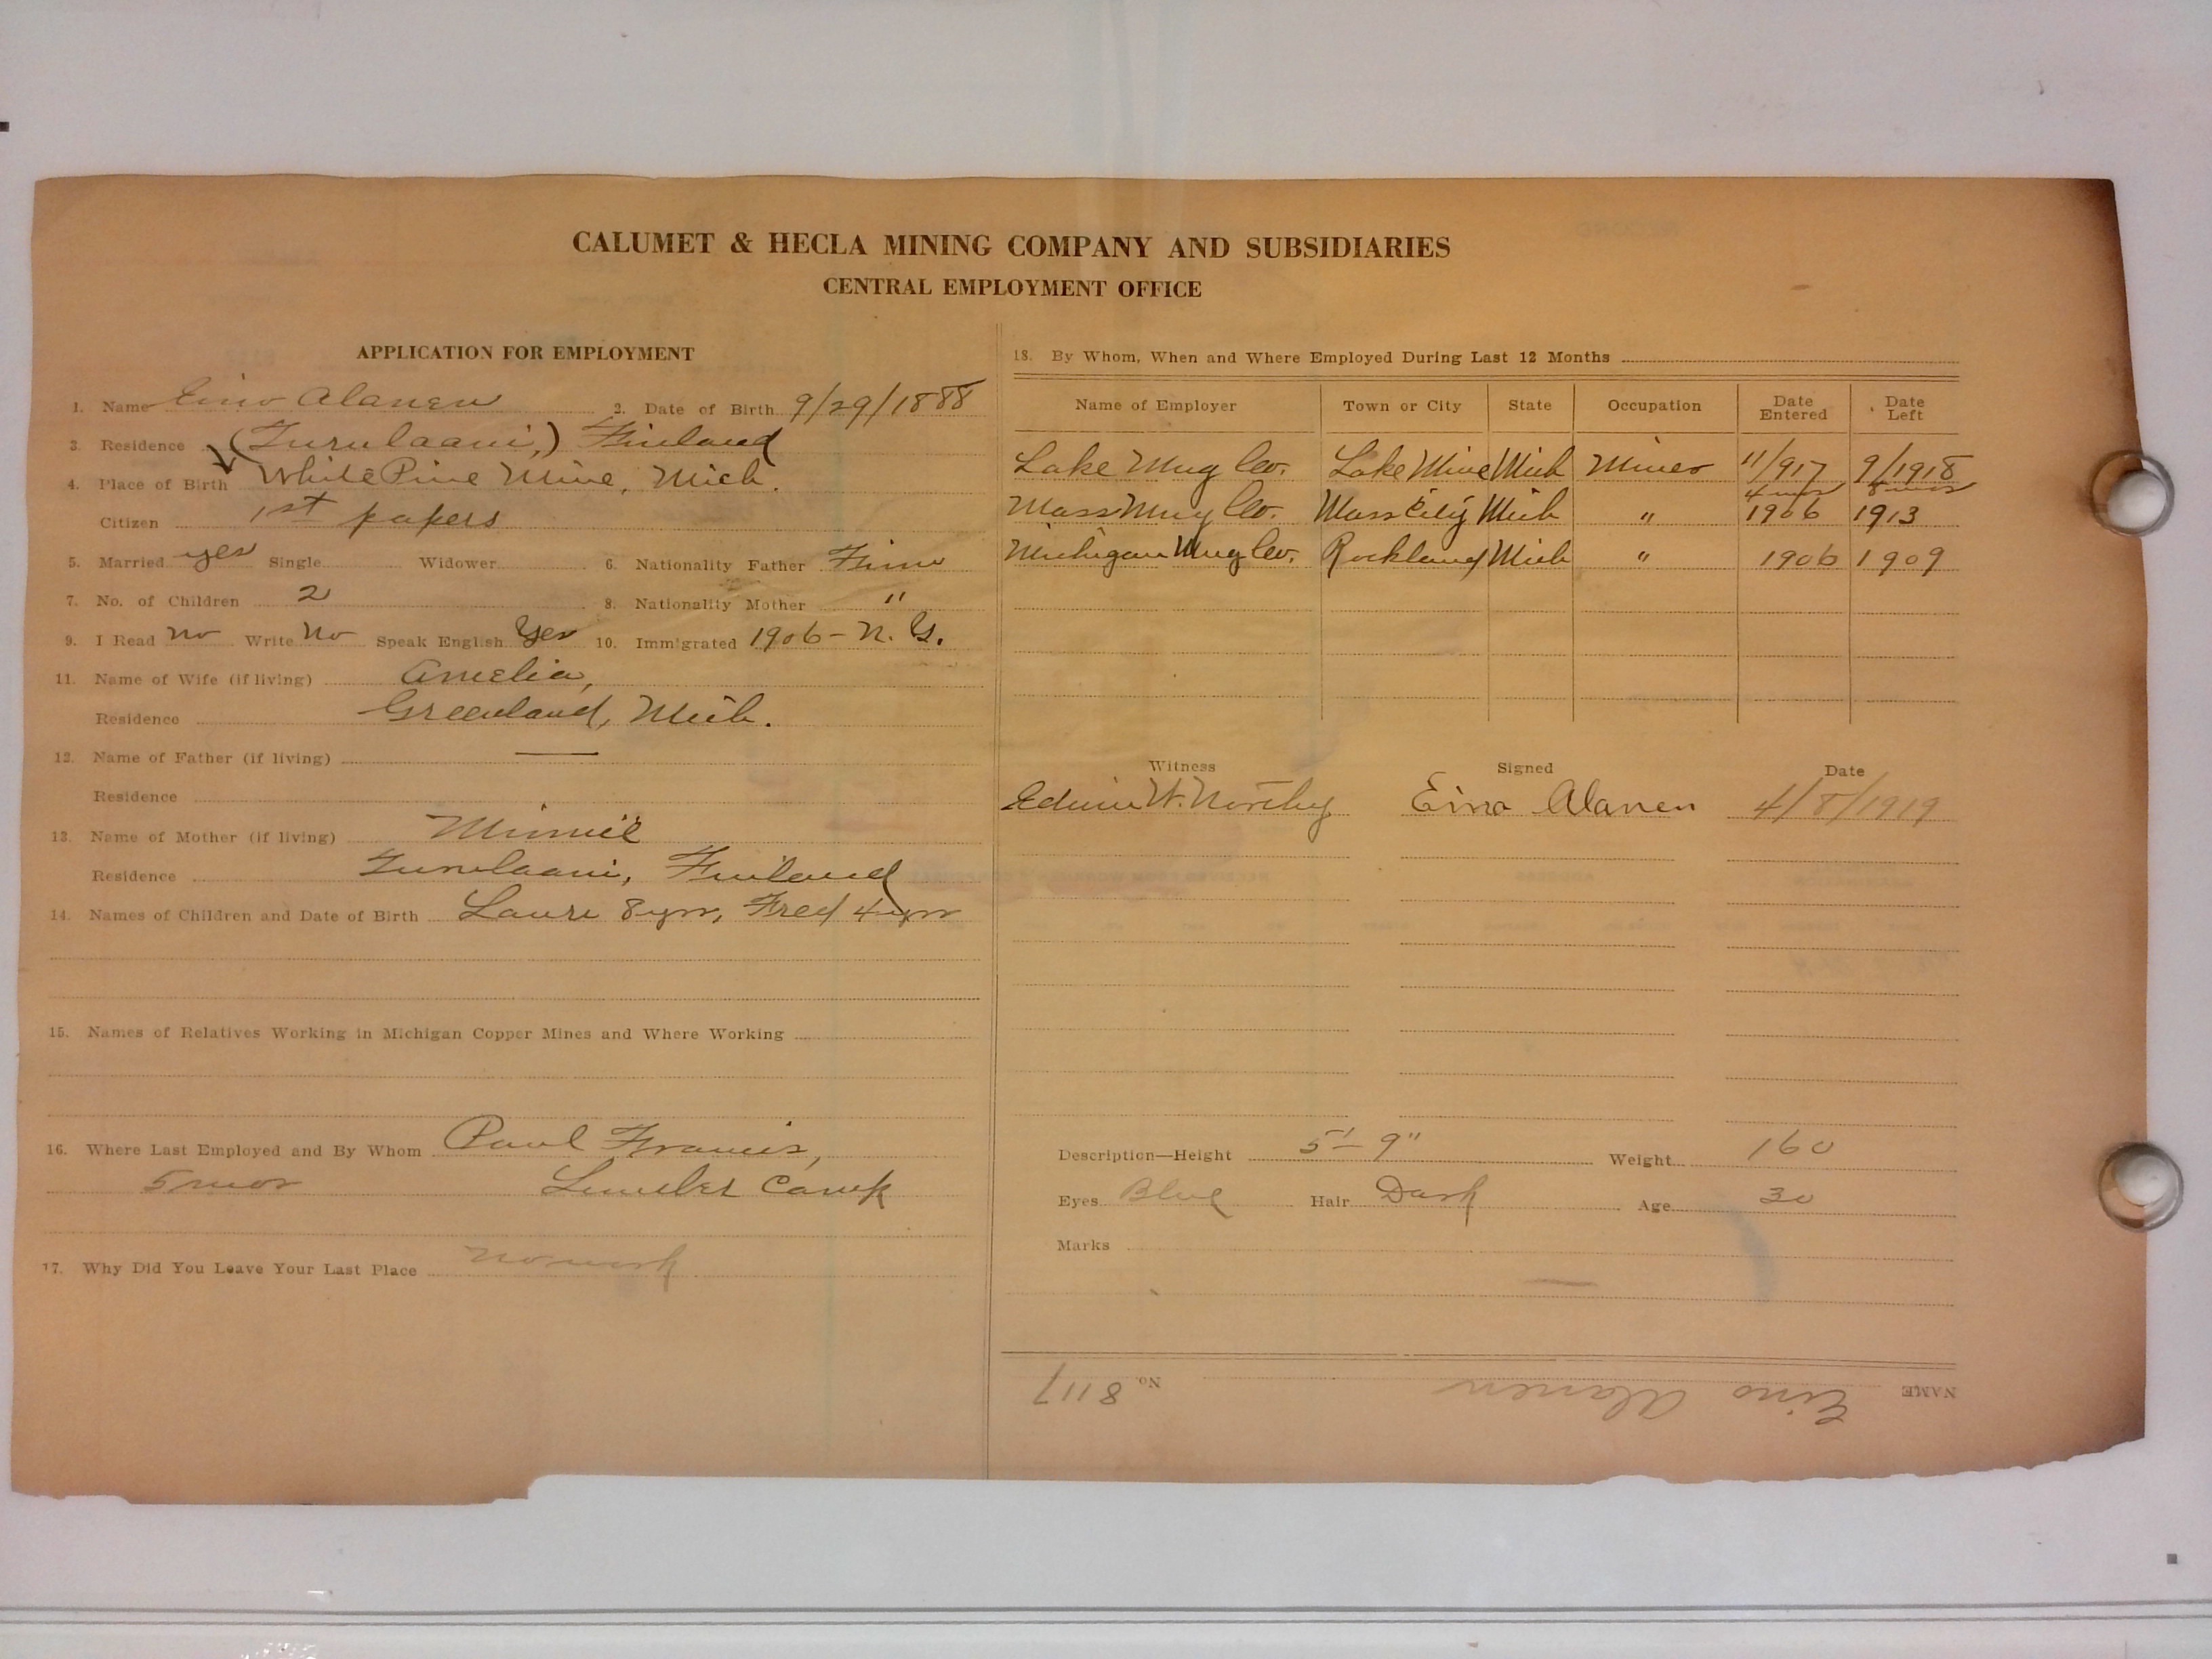 CALUMET & HECLA MINING COMPANY AND SUBSIDIARIES
CENTRAL EMPLOYMENT OFFICE
APPLICATION FOR EMPLOYMENT
1. Name Eino Alanen 2. Date of Birth 9/29/1888
3. Residence (Turulaani,) Finland
4. Place of Birth White Pine Mine, Mich.
Citizen 1st papers
5. Married yes Single Widower 6. Nationality Father Finn
7. No. of Children 2 8. Nationality Mother "
9. I Read no Write no Speak English Yes 10. Immigrated 1906 - N. Y.
11. Name of Wife (if living) Amelia,
Residence Greenland, Mich.
12. Name of Father (if living) —
Residence
13. Name of Mother (if living) Minnie
Residence Turulaani, Finland
14. Names of Children and Date of Birth Lauri 8 yrs, Fred 4 yrs
15. Names of Relatives Working in Michigan Copper Mines and Where Working
16. Where Last Employed and By Whom Paul Francis,
5 mos Lumber Camp
17. Why Did You Leave Your Last Place No work
18. By Whom, When and Where Employed During Last 12 Months
Name of Employer Town or City State Occupation Date Entered Date Left
Lake Mng Co. Lake Mine Mich Miner 11/917 9/1918
4 mos 8 mos
Mass Mng Co. Mass City Mich " 1906 1913
Michigan Mng Co. Rockland Mich " 1906 1909
Witness Signed Date
Edwin W. Eino Alanen 4/8/1919
Description—Height 5'-9" Weight 160
Eyes Blue Hair Dark Age 30
Marks
NAME Eino Alanen No. 8117